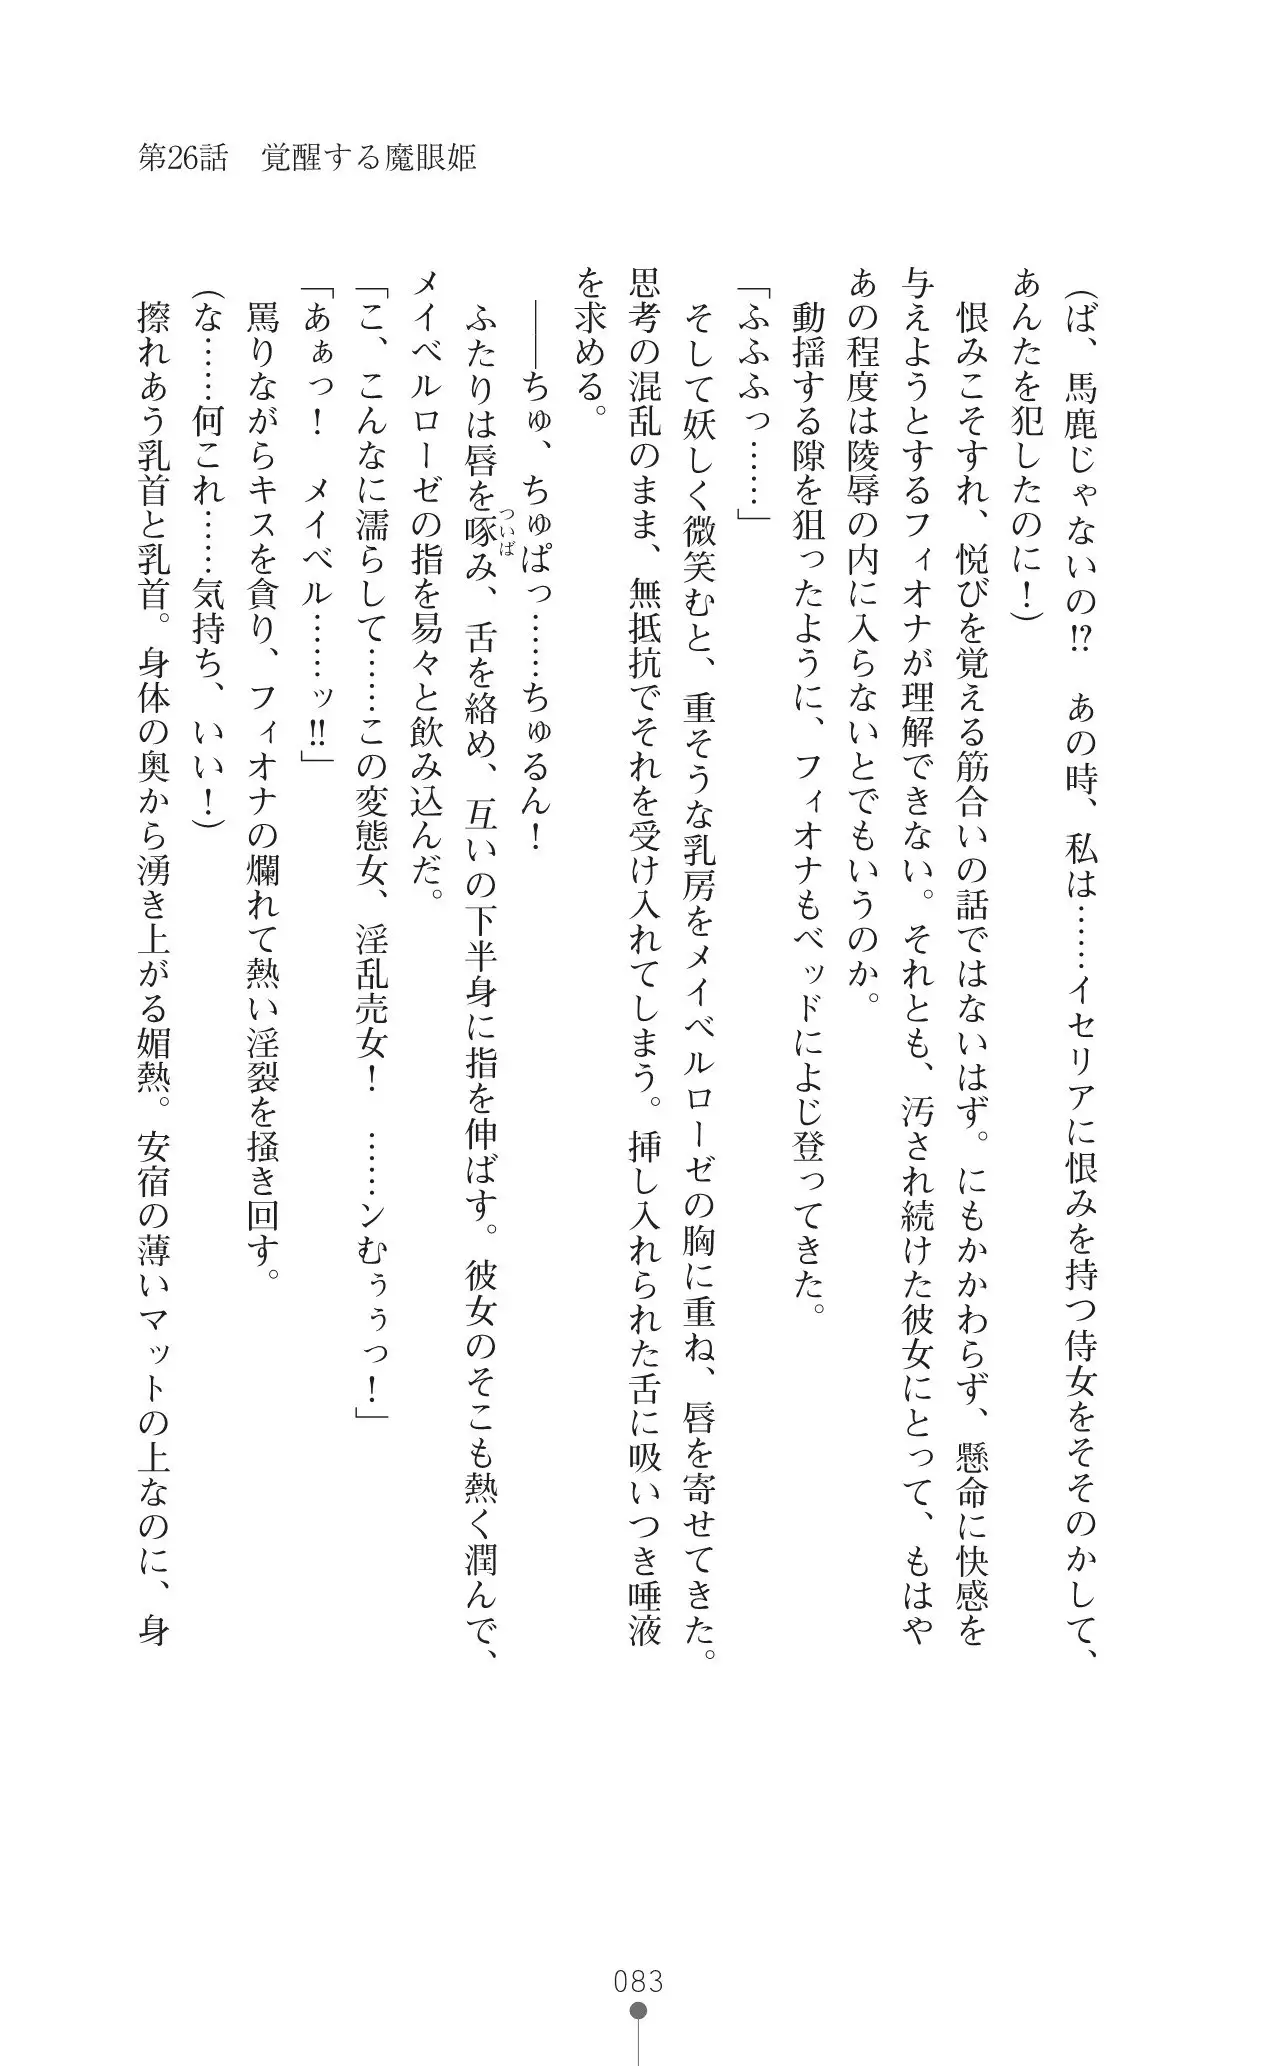 第26話　覚醒する魔眼姫
(ば、馬鹿じゃないの!?　あの時、私は……イセリアに恨みを持つ侍女をそそのかして、
あんたを犯したのに！)
　恨みこそすれ、悦びを覚える筋合いの話ではないはず。にもかかわらず、懸命に快感を
与えようとするフィオナが理解できない。それとも、汚され続けた彼女にとって、もはや
あの程度は陵辱の内に入らないとでもいうのか。
　動揺する隙を狙ったように、フィオナもベッドによじ登ってきた。
「ふふふっ……」
　そして妖しく微笑むと、重そうな乳房をメイベルローゼの胸に重ね、唇を寄せてきた。
思考の混乱のまま、無抵抗でそれを受け入れてしまう。挿し入れられた舌に吸いつき唾液
を求める。
　――ちゅ、ちゅぱっ……ちゅるん！
　ふたりは唇を啄み、舌を絡め、互いの下半身に指を伸ばす。彼女のそこも熱く潤んで、
ついば
メイベルローゼの指を易々と飲み込んだ。
「こ、こんなに濡らして……この変態女、淫乱売女！　……ンむぅぅっ！」
「あぁっ！　メイベル……ッ!!」
　罵りながらキスを貪り、フィオナの爛れて熱い淫裂を掻き回す。
(な……何これ……気持ち、いい！)
　擦れあう乳首と乳首。身体の奥から湧き上がる媚熱。安宿の薄いマットの上なのに、身
083